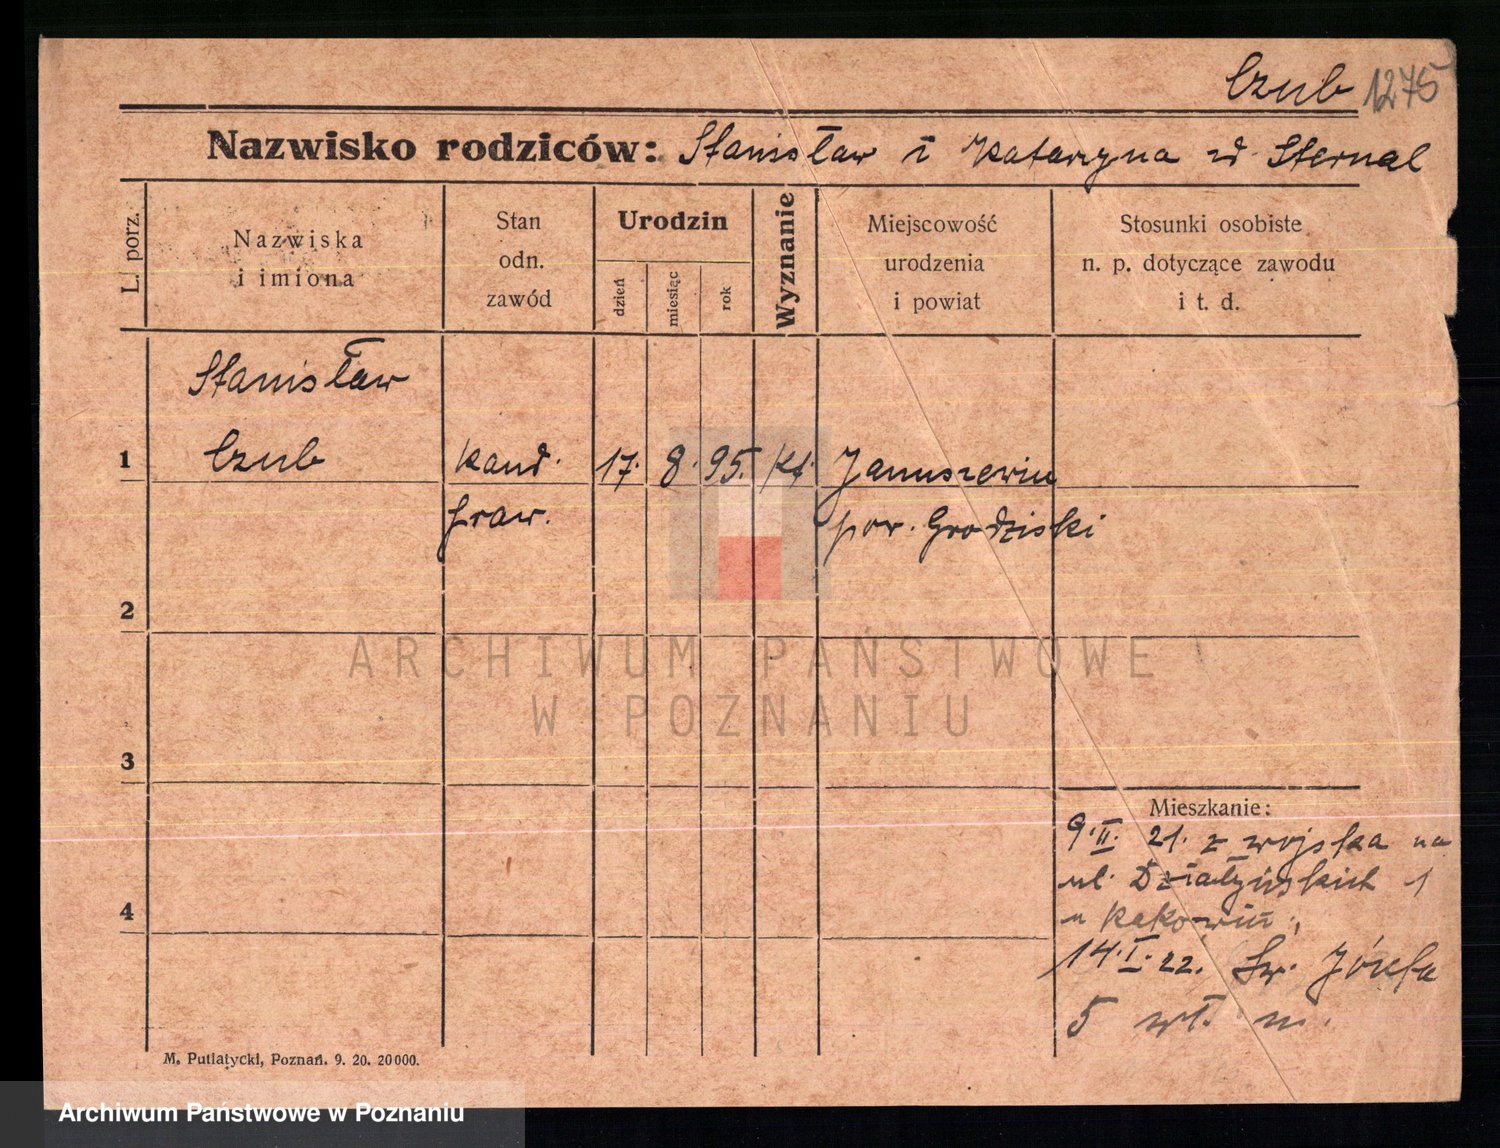 Czub 1275
Nazwisko rodziców: Stanisław i Katarzyna zd Sternal
L. porz.
Nazwiska
i imiona
Stan
odn.
zawód
Urodzin
dzień
miesiąc
rok
Wyznanie
Miejscowość
urodzenia
i powiat
Stosunki osobiste
n. p. dotyczące zawodu
i t. d.
Stanisław
1 Czub kand. 17. 8. 95. kt. Januszewiu
praw. pow. Grodziski
2
3
4
Mieszkanie:
9.II. 21. z wojska na
ul. Działyńskich 1
14.I.22. Św. Józefa
5 wł. m.
M. Putiatycki, Poznań. 9. 20. 20000.
ARCHIWUM PAŃSTWOWE
W POZNANIU
Archiwum Państwowe w Poznaniu